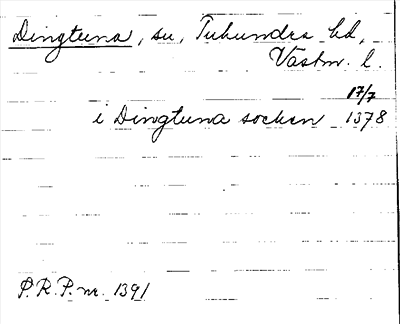 Dingtuna, sn, Tuhundra hd,
Västm. l.
17/7
i Dingtuna socken 1378
P.R.P. nr. 1391